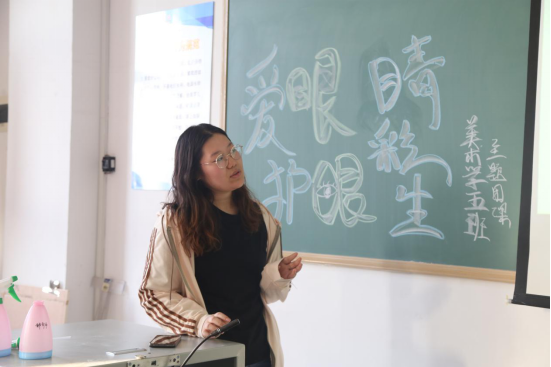 爱眼
护眼
睛彩生
美术学五班
主题团课